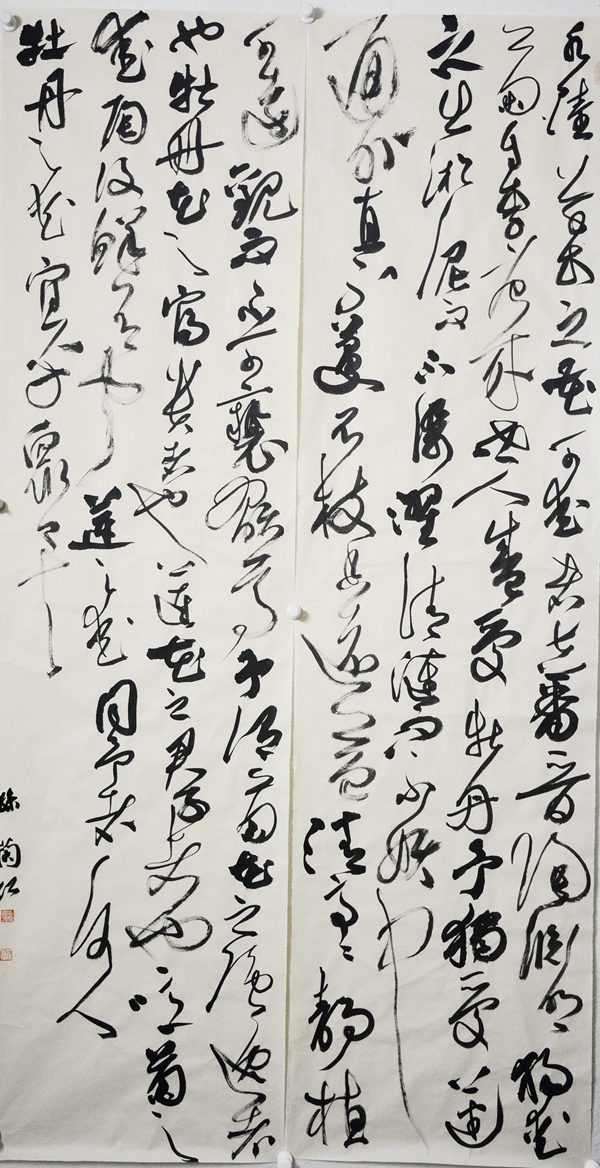 水陸草木之花可愛者甚蕃晉陶淵明獨愛
菊自李唐來世人盛愛牡丹予獨愛蓮
之出淤泥而不染濯清漣而不妖中
通外直不蔓不枝香遠益清亭亭靜植
可遠觀而不可褻玩焉予謂菊花之隱逸者
也牡丹花之富貴者也蓮花之君子者也噫菊之
愛陶後鮮有聞蓮之愛同予者何人
牡丹之愛宜乎眾矣